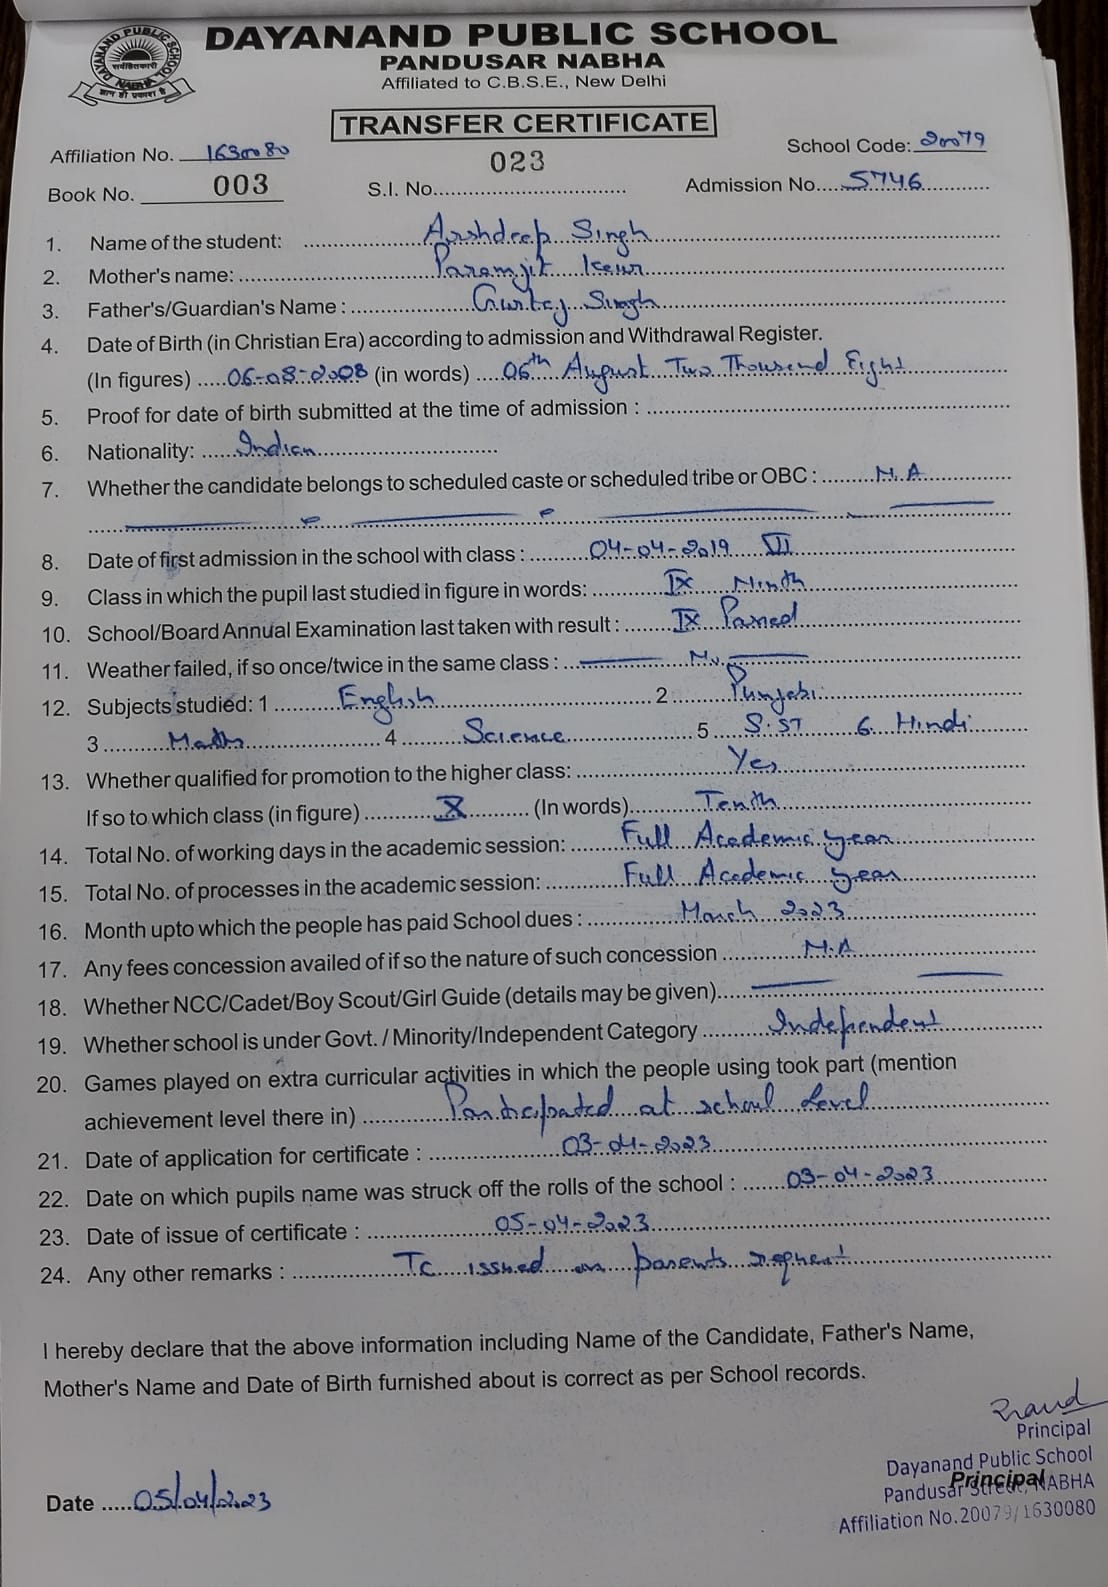 DAYANAND PUBLIC SCHOOL
PANDUSAR NABHA
Affiliated to C.B.S.E., New Delhi
DAYANAND PUBLIC SCHOOL
NABHA
TRANSFER CERTIFICATE
Affiliation No. 1630080 School Code: 20079
Book No. 003 S.I. No. 023 Admission No. 5746
1. Name of the student: Arshdeep Singh
2. Mother's name: Paramjit Kaur
3. Father's/Guardian's Name : Gurtej Singh
4. Date of Birth (in Christian Era) according to admission and Withdrawal Register.
(In figures) 06-08-2008 (in words) 06th August Two Thousand Eight
5. Proof for date of birth submitted at the time of admission :
6. Nationality: Indian
7. Whether the candidate belongs to scheduled caste or scheduled tribe or OBC : N.A
8. Date of first admission in the school with class : 04-04-2019
9. Class in which the pupil last studied in figure in words: IX Ninth
10. School/Board Annual Examination last taken with result : IX Passed
11. Weather failed, if so once/twice in the same class : No
12. Subjects studied: 1 English 2 Punjabi
3 Math 4 Science 5 S.ST 6. Hindi
13. Whether qualified for promotion to the higher class: Yes
If so to which class (in figure) X (In words) Tenth
14. Total No. of working days in the academic session: Full Academic year
15. Total No. of processes in the academic session: Full Academic year
16. Month upto which the people has paid School dues : March 2023
17. Any fees concession availed of if so the nature of such concession N.A
18. Whether NCC/Cadet/Boy Scout/Girl Guide (details may be given)
19. Whether school is under Govt. / Minority/Independent Category Independent
20. Games played on extra curricular activities in which the people using took part (mention
achievement level there in) Participated at school level
21. Date of application for certificate : 03-04-2023
22. Date on which pupils name was struck off the rolls of the school : 03-04-2023
23. Date of issue of certificate : 05-04-2023
24. Any other remarks : TC issued on parents request
I hereby declare that the above information including Name of the Candidate, Father's Name,
Mother's Name and Date of Birth furnished about is correct as per School records.
Principal
Dayanand Public School
Principal
Pandusar Street, NABHA
Affiliation No.20079/1630080
Date 05/04/2023